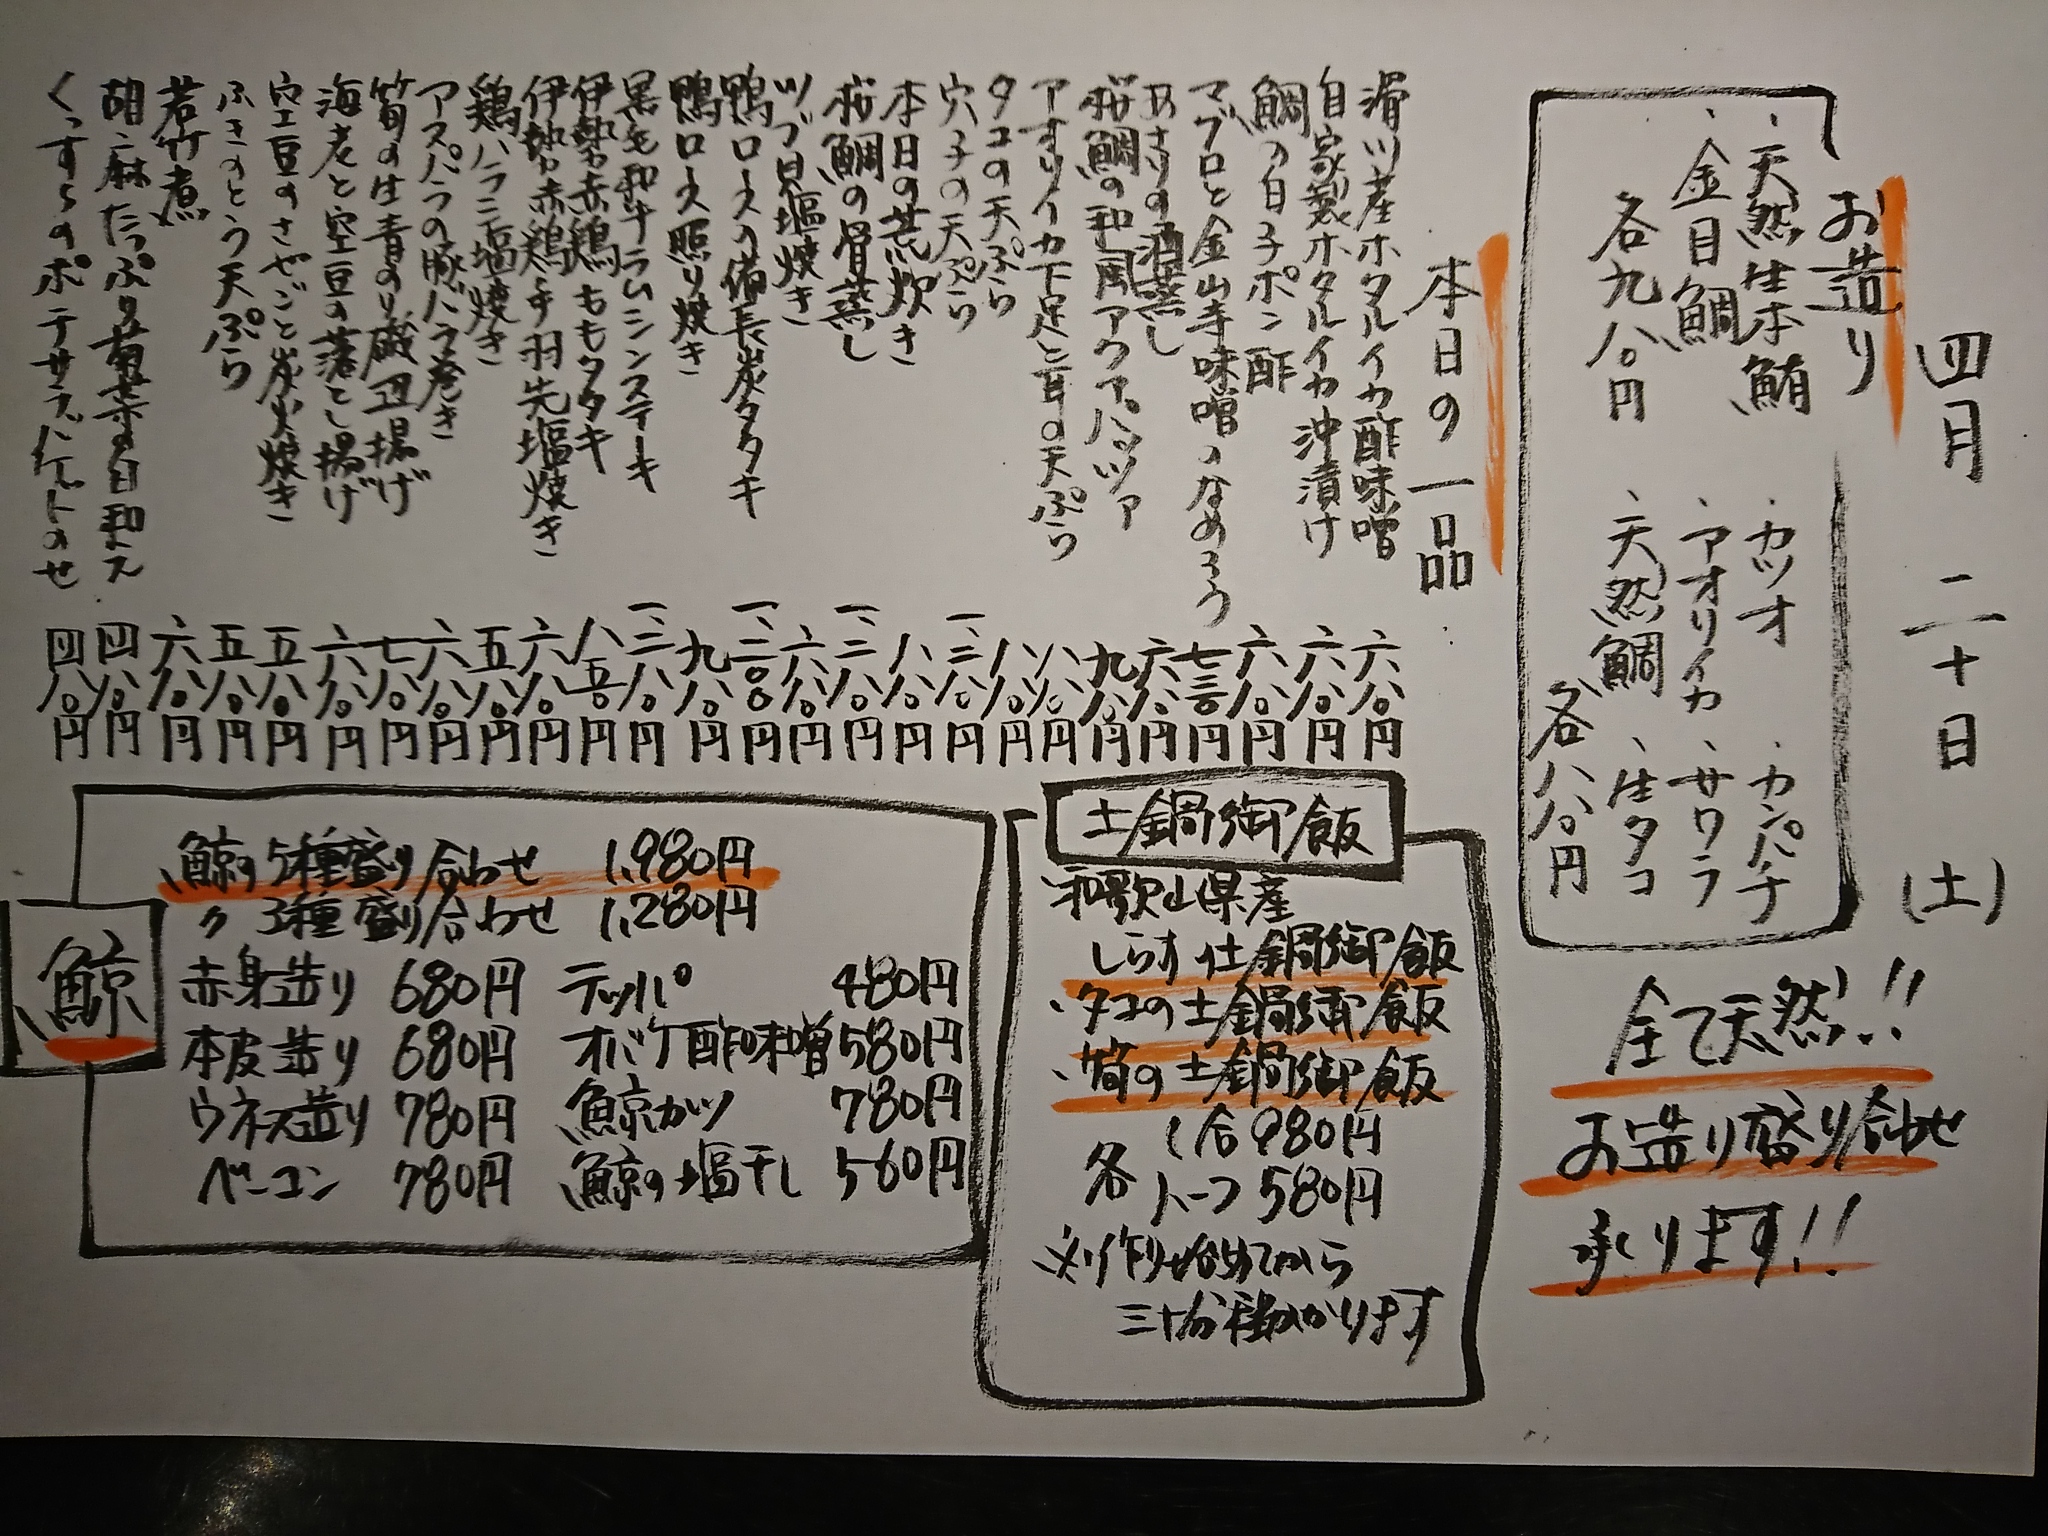 四月 二十日 (土)
お造り
・天然生本鮪
・金目鯛
各九八〇円
・カツオ ・カンパチ
・アオリイカ ・サワラ
・天然鯛 ・生タコ
各八八〇円
全て天然!!
お造り盛り合わせ
承ります!!
本日の一品
滑川産ホタルイカ酢味噌 六八〇円
自家製ホタルイカ沖漬け 六八〇円
鯛の白子ポン酢 六八〇円
マグロと金山寺味噌のなめろう 七三〇円
あさりの酒蒸し 六八〇円
桜鯛の和風アクアパッツァ 九八〇円
アオリイカ下足と耳の天ぷら 八八〇円
タコの天ぷら 八八〇円
穴子の天ぷら 一、三八〇円
本日の荒炊き 八八〇円
桜鯛の骨蒸し 一、三八〇円
ツブ貝塩焼き 六八〇円
鴨ロースの備長炭タタキ 一、二〇〇円
鴨ロース照り焼き 九八〇円
黒毛和牛ラムシンステーキ 一、三八〇円
伊勢赤鶏ももタタキ 八五〇円
伊勢赤鶏手羽先塩焼き 六八〇円
鶏ハラミ塩焼き 五八〇円
アスパラの豚バラ巻き 六八〇円
筍の生青のり磯辺揚げ 七八〇円
海老と空豆の落とし揚げ 六八〇円
空豆のさやごと炭火焼き 五八〇円
ふきのとう天ぷら 五八〇円
若竹煮 六八〇円
胡麻たっぷり菊菜の白和え 四八〇円
くずし ポテサラバケットのせ 四八〇円
土鍋御飯
和歌山県産
しらす 土鍋御飯
・タコの土鍋御飯
・筍の土鍋御飯
各 1合 980円
ハーフ 580円
※作り始めてから
三十分程かかります
鯨
鯨の5種盛り合わせ 1,980円
〃 3種盛り合わせ 1,280円
赤身造り 680円 テッパ 480円
本皮造り 680円 オバケ酢味噌 580円
ウネス造り 780円 鯨カツ 780円
ベーコン 780円 鯨の塩干し 560円